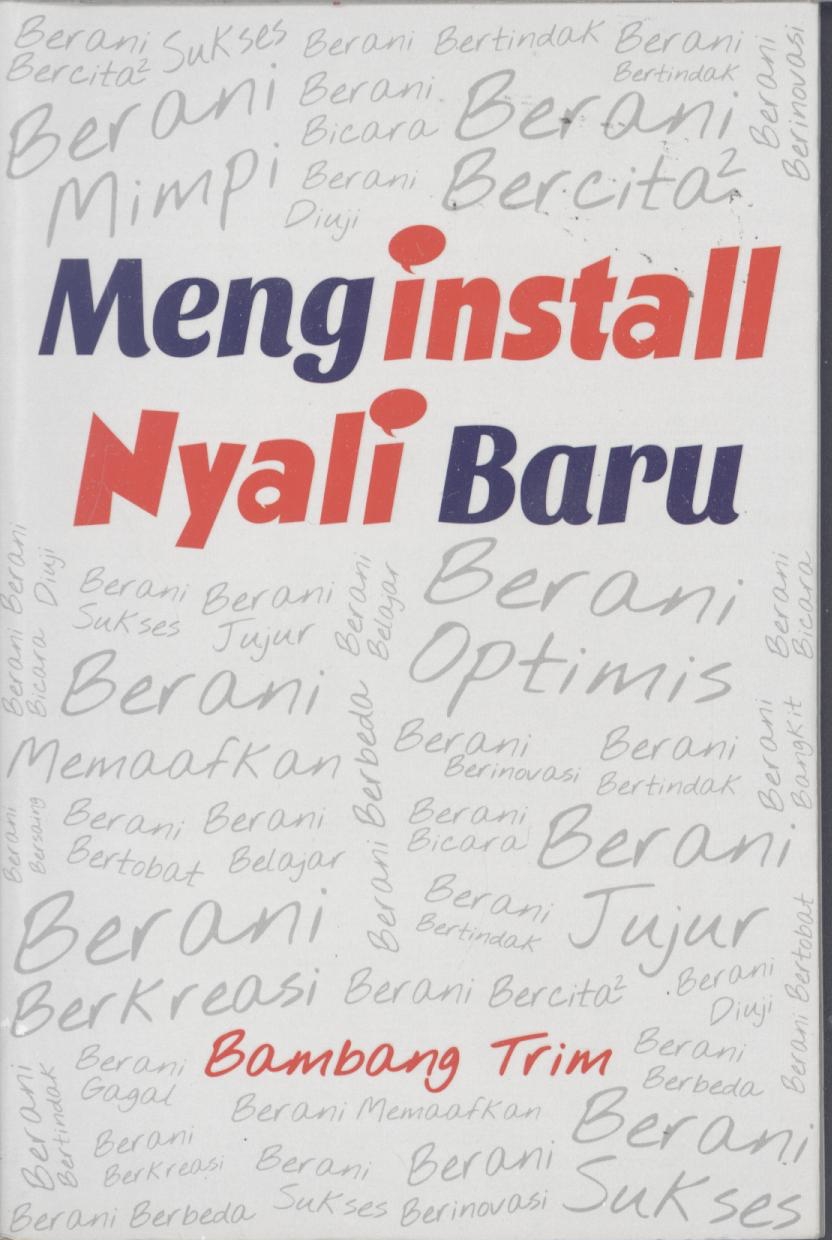 Berani Sukses Berani Bertindak Berani
Bercita² Bertindak
Berani Berinovasi
Berani Berani Berani
Bicara
Mimpi Berani Bercita²
Diuji
Menginstall
Nyali Baru
Berani Diuji
Berani
Berani Bicara
Berani Berani
Sukses Jujur
Berani Belajar
Berani
Optimis
Berani Bicara
Berani
Memaafkan
Berani Berbeda
Berani Berani
Berinovasi Bertindak
Berani Bangkit
Berani Bersaing
Berani Berani Berani
Bertobat Belajar Bicara
Berani
Jujur
Berani
Bertindak
Berani
Berkreasi Berani Bercita²
Berani
Diuji
Berani Bertobat
Bambang Trim
Berani Berani
Gagal Berbeda
Berani Bertindak
Berani Memaafkan
Berani
Sukses
Berani Berani Berani
Berkreasi Sukses Berinovasi
Berani Berbeda